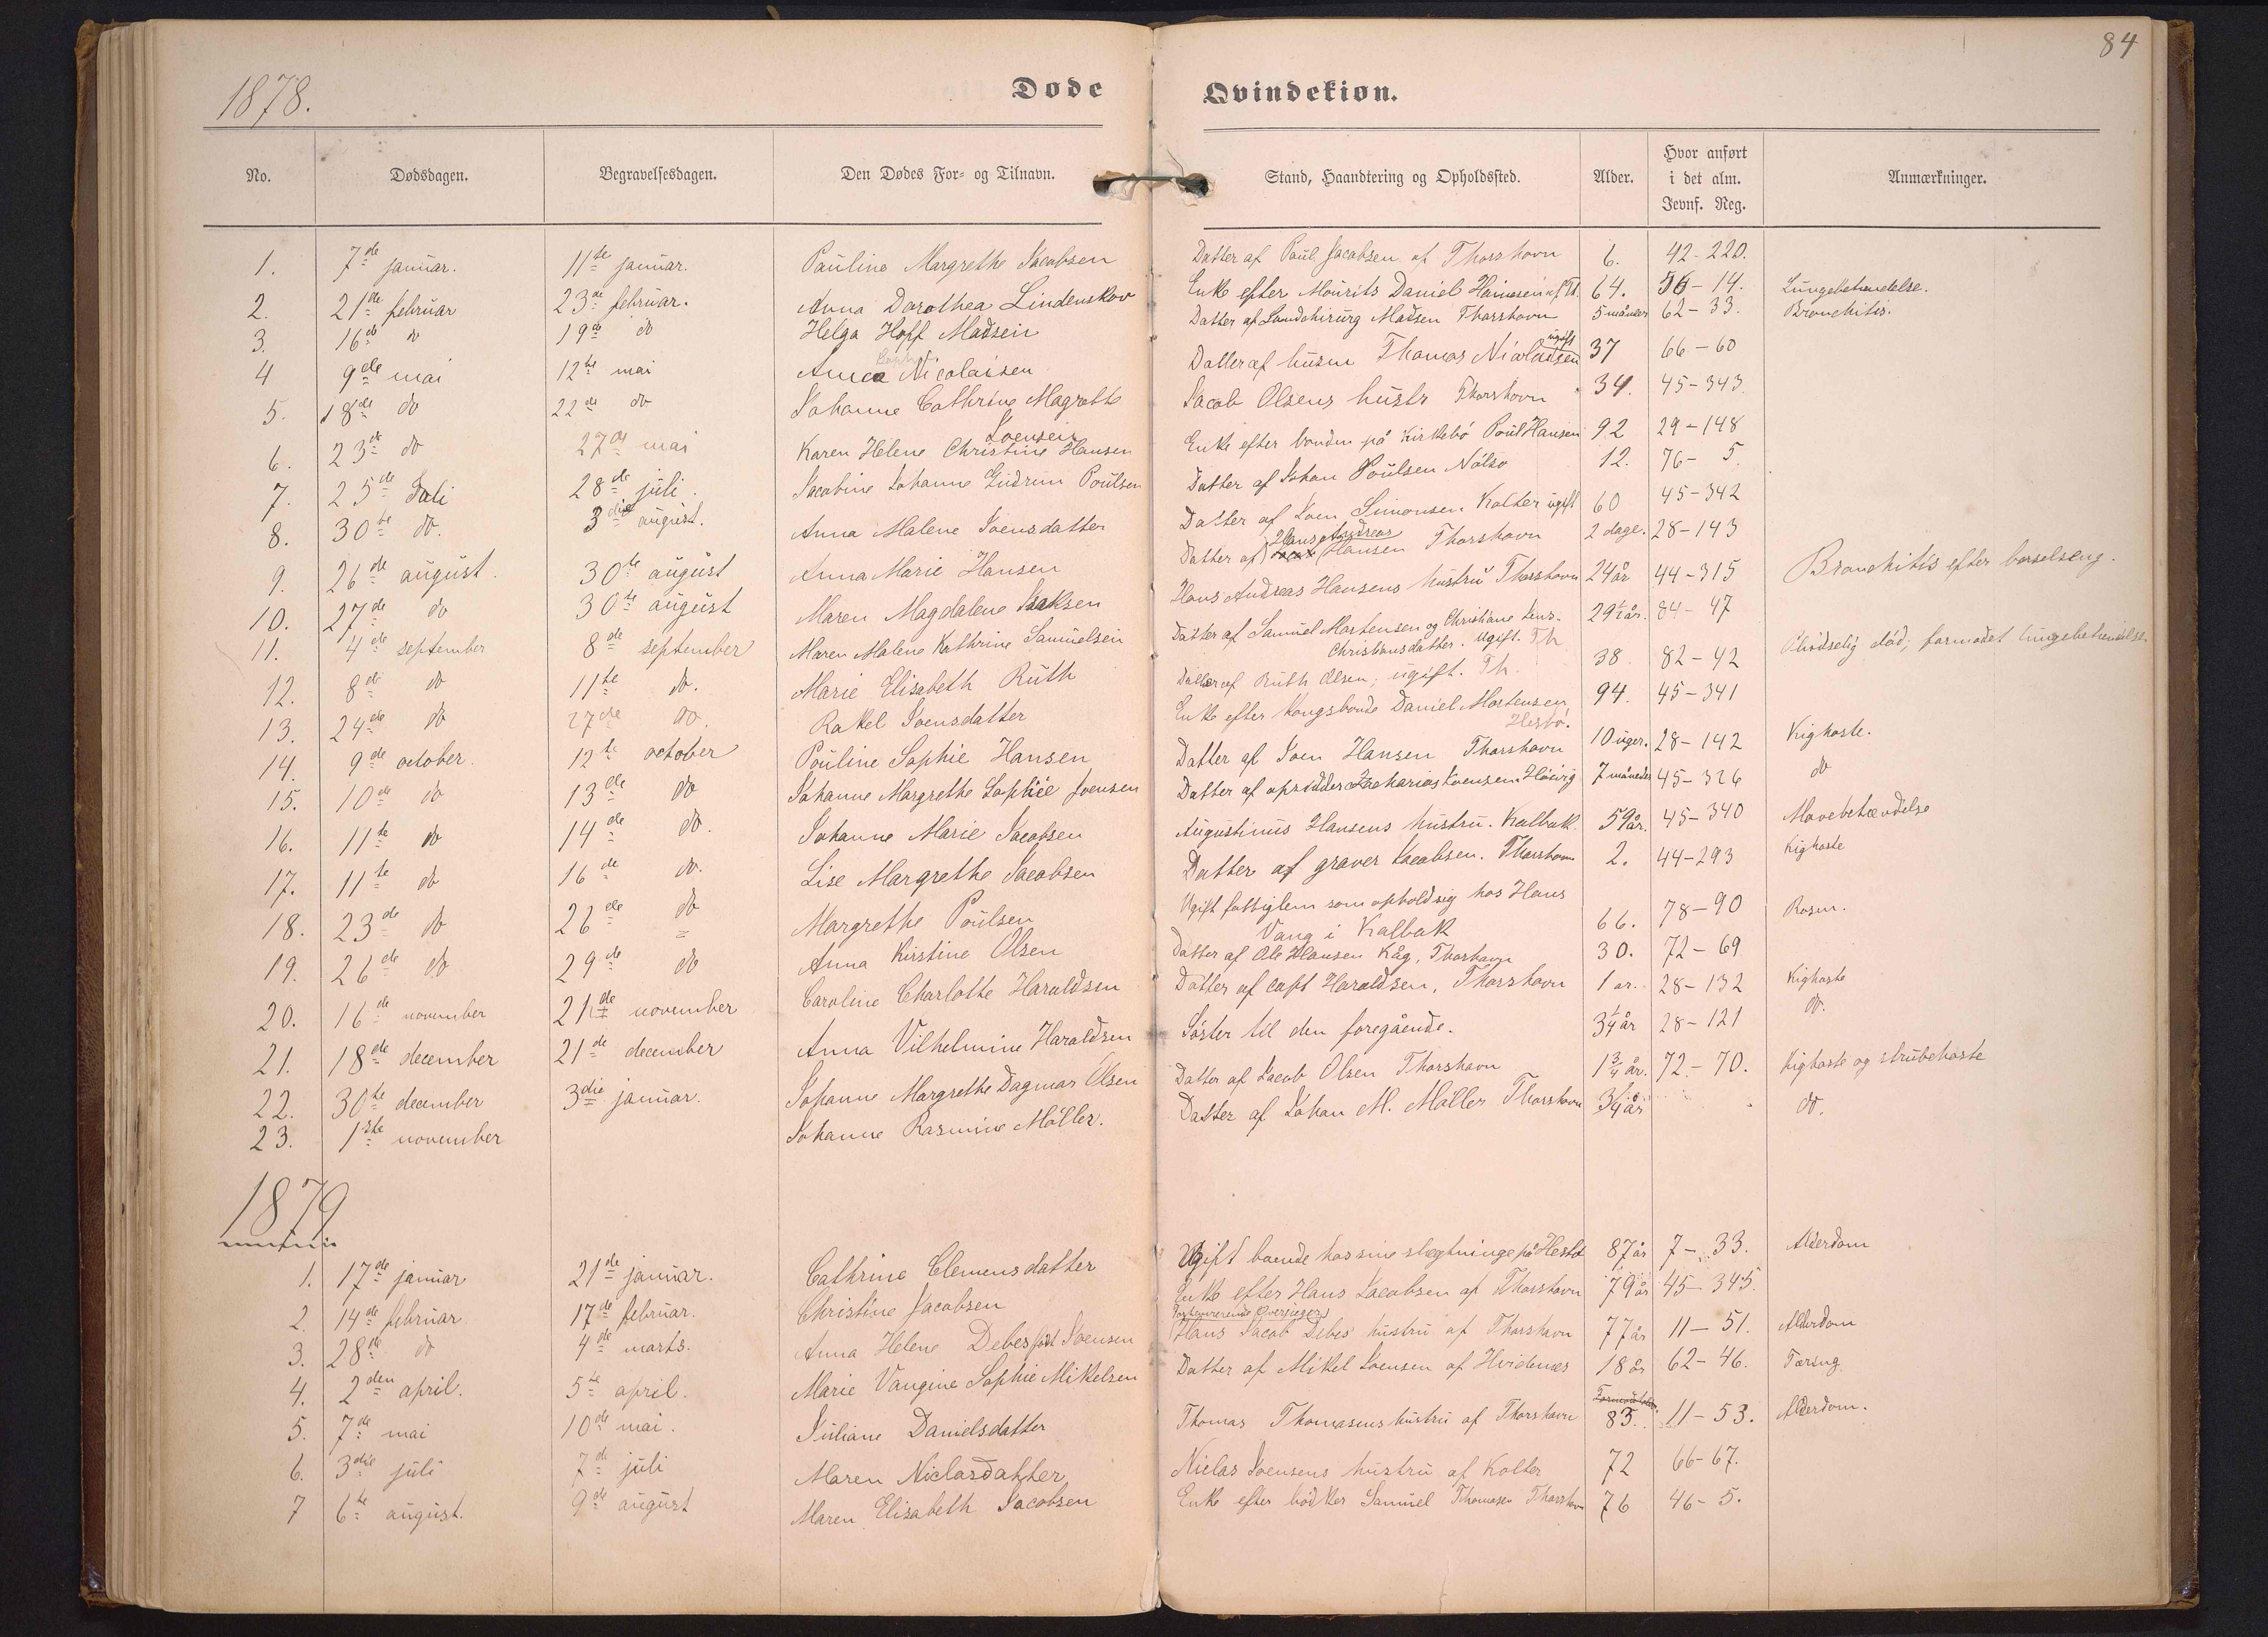 84
1878.
Døde Qvindekiøn.
No. Dødsdagen. Begravelsesdagen. Den Dødes For- og Tilnavn. Stand, Haandtering og Opholdssted. Alder. Hvor anført i det alm. Jevnf. Reg. Anmærkninger.
1. 7de januar. 11te januar. Pauline Margrethe Jacobsen Datter af Poul Jacobsen af Thorshavn 6. 42-220.
2. 21de februar 23de februar. Anna Dorothea Lindenskov Enke efter Mourits Daniel af Th. 64. 56-14. Lungebetændelse.
3. 16de do 19de do Helga Hoff Madsen Datter af Landchirurg Madsen Thorshavn 5 måneder 62-33. Bronchitis.
4 9de mai 12te mai Anna Sophie Nicolaisen Datter af husm Thomas Nicolaisen ugift 37 66-60
5. 18de do 22de do Johanne Cathrine Magrethe Joensen Jacob Olsens hustr Thorshavn 34. 45-343.
6. 23de do 27de mai Karen Helene Christine Hansen Enke efter bonden på Kirkebø Poul Hansen 92 29-148
7. 25de Juli 28de juli. Jacobine Johanne Gudrun Poulsen Datter af Johan Poulsen Nolsø 12. 76-5.
8. 30te do. 3die august. Anna Malene Joensdatter Datter af Joen Simonsen Kolter ugift 60 45-342
9. 26de august. 30te august Anna Marie Hansen Datter af Hans Andreas Hansen Thorshavn 2 dage. 28-143
10. 27de do 30te august Maren Magdalene Isaksen Hans Andreas Hansens hustru Thorshavn 24 år 44-315 Bronchitis efter barselseng.
11. 4de september 8de september Maren Malene Kathrine Samuelsen Datter af Samuel Mortensen og Christiane Jens-
Christiansdatter. Ugift. Th 29½ år. 84-47
12. 8de do 11te do. Marie Elisabeth Ruth Datter af Ruth Olsen; ugift. Th. 38. 82-42 Pludselig død; formodet lungebetændelse
13. 24de do 27de do. Rakel Joensdatter Enke efter Kongsbonde Daniel Mortensen, Hestø. 94. 45-341
14. 9de october. 12te october Pouline Sophie Hansen Datter af Joen Hansen Thorshavn 10 uger. 28-142 Kighoste.
15. 10de do 13de do Johanne Margrethe Sophie Joensen Datter af opsidder Zacharias Joensen Hoivig 7 måneder 45-326 do
16. 11te do 14de do. Johanne Marie Jacobsen Augustinus Hansens hustru. Kalbak. 59 år. 45-340 Mavebetændelse
17. 11te do 16de do. Lise Margrethe Jacobsen Datter af graver Jacobsen. Thorshavn 2. 44-293 Kighoste
18. 23de do 26de do Margrethe Poulsen Ugift fattiglem som opholdt sig hos Hans
Vang i Kalbak 66. 78-90 Rosen.
19. 26de do 29de do Anna Kirstine Olsen Datter af Ole Hansen Kåg, Thorshavn 30. 72-69
20. 16de november 21de november Caroline Charlotte Haraldsen Datter af capt Haraldsen, Thorshavn 1 ar. 28-132 Kighoste
21. 18de december 21de december Anna Vilhelmine Haraldsen Søster til den foregående. 3¼ år 28-121 do.
22. 30te december 3die januar. Johanne Margrethe Dagmar Olsen Datter af Jacob Olsen Thorshavn 1¾ år. 72-70. Kighoste og strubehoste
23. 1ste november Johanne Rasmine Møller. Datter af Johan M. Møller Thorshavn 3¼ år do.
1879
1. 17de januar 21de januar. Cathrine Clemensdatter Ugift boende hos sine slægtninge på Hestø 87 år 7-33. Alderdom
2. 14de februar 17de februar. Christine Jacobsen Enke efter Hans Jacobsen af Thorshavn 79 år 45-345.
3. 28de do 4de marts. Anna Helene Debes født Joensen Hans Jacob Debes' hustru af Thorshavn 77 år 11-51. Alderdom
4. 2den april. 5te april. Marie Vangine Sophie Mikelsen Datter af Mikel Joensen af Hvidenæs 18 år 62-46. Tæring.
5. 7de mai 10de mai. Juliane Danielsdatter Thomas Thomasens hustru af Thorshavn 83. 11-53. Alderdom.
6. 3die juli 7de juli Maren Niclasdatter Niclas Joensens hustru af Kolter 72 66-67.
7 6te august. 9de august Maren Elisabeth Jacobsen Enke efter bødker Samuel Thomasen Thorshavn 76 46-5.